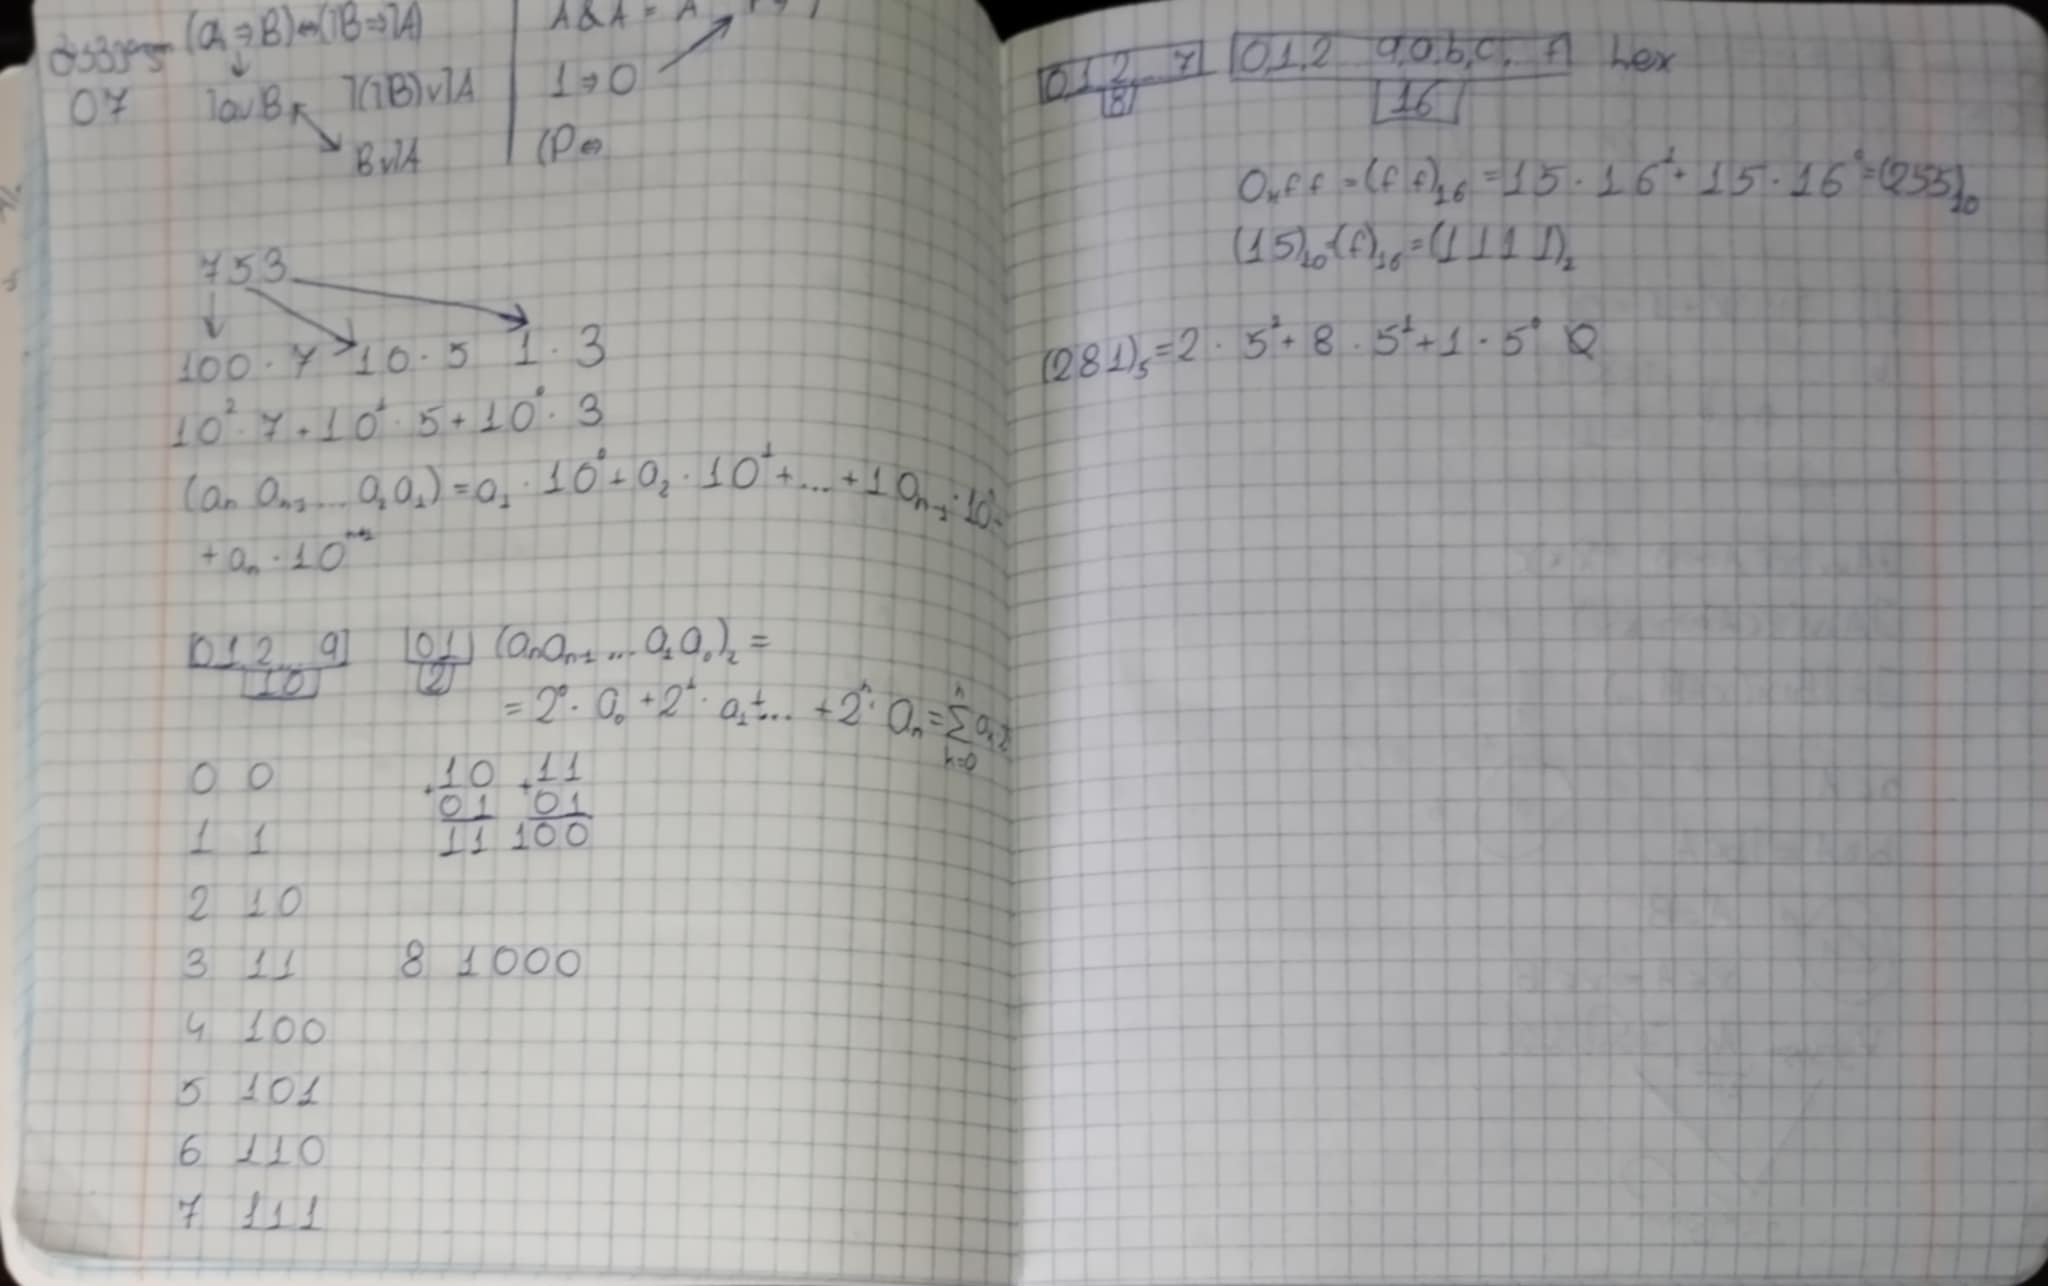 (a⇒B)⇔(˥B⇒˥A)
07 ˥a∨B ˥(˥B)∨˥A
B∨˥A
A&A = A
1⇒0
(P⇔
753
100·7 10·5 1·3
10²·7+10¹·5+10⁰·3
(aₙ aₙ₋₁ ... a₂a₁) = a₁·10⁰+a₂·10¹+...+1aₙ₋₁·10
+aₙ·10
0 1 2 ... 9 0 1 (aₙaₙ₋₁ ... a₁a₀)₂ =
10 2
= 2⁰·a₀+2¹·a₁+...+2ⁿ·aₙ=
0 0
1 1
2 10
3 11
4 100
5 101
6 110
7 111
+10 +11
01 01
11 100
8 1000
0 1 2 ... 7 0 1 2 9,a,b,c, f hex
8 16
0xff = (ff)₁₆ = 15·16¹+15·16⁰=(255)₁₀
(15)₁₀=(f)₁₆=(1111)₂
(281)₅=2·5²+8·5¹+1·5⁰